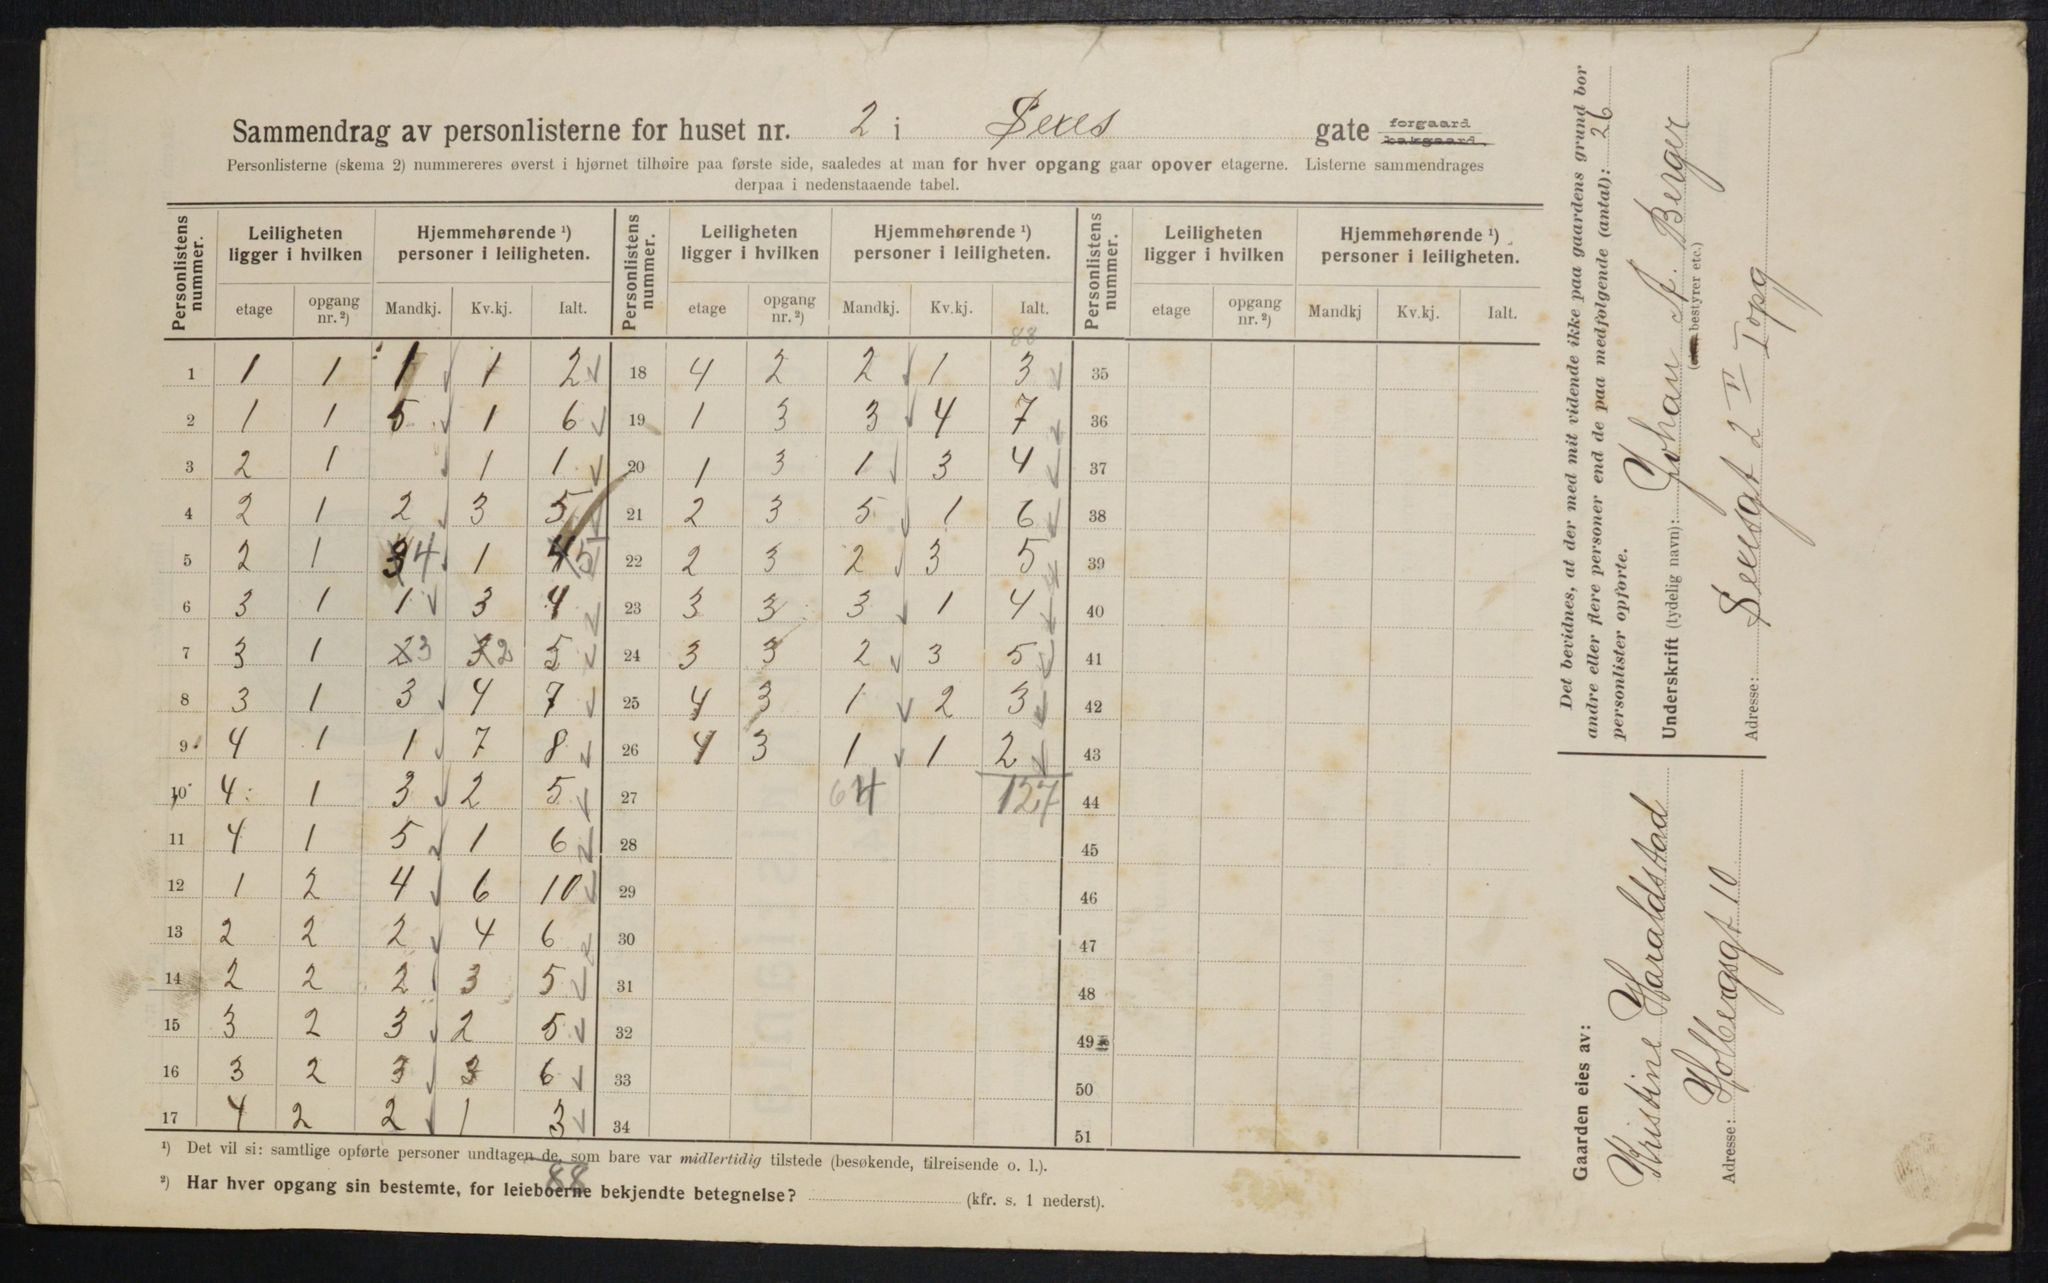 Sammendrag av personlisterne for huset nr. 2 i Sexes gate forgaard bakgaard.
Personlisterne (skema 2) nummereres øverst i hjørnet tilhøire paa første side, saaledes at man for hver opgang gaar opover etagerne. Listerne sammendrages
derpaa i nedenstaaende tabel.
Personlistens nummer. Leiligheten ligger i hvilken Hjemmehørende ¹) personer i leiligheten. Personlistens nummer. Leiligheten ligger i hvilken Hjemmehørende ¹) personer i leiligheten. Personlistens nummer. Leiligheten ligger i hvilken Hjemmehørende ¹) personer i leiligheten.
etage opgang nr. ²) Mandkj. Kv.kj. Ialt. etage opgang nr. ²) Mandkj. Kv.kj. Ialt. etage opgang nr. ²) Mandkj Kv.kj. Ialt.
88
1 1 1 1 1 2 18 4 2 2 1 3 35
2 1 1 5 1 6 19 1 3 3 4 7 36
3 2 1 1 1 20 1 3 1 3 4 37
4 2 1 2 3 5 21 2 3 5 1 6 38
5 2 1 3 4 1 4 5 22 2 3 2 3 5 39
6 3 1 1 3 4 23 3 3 3 1 4 40
7 3 1 2 3 3 2 5 24 3 3 2 3 5 41
8 3 1 3 4 7 25 4 3 1 2 3 42
9 4 1 1 7 8 26 4 3 1 1 2 43
10 4 1 3 2 5 27 64 127 44
11 4 1 5 1 6 28 45
12 1 2 4 6 10 29 46
13 2 2 2 4 6 30 47
14 2 2 2 3 5 31 48
15 3 2 3 2 5 32 49
16 3 2 3 3 6 33 50
17 4 2 2 1 3 34 51
¹) Det vil si: samtlige opførte personer undtagen de, som bare var midlertidig tilstede (besøkende, tilreisende o. l.).
88
²) Har hver opgang sin bestemte, for leieboerne bekjendte betegnelse? (kfr. s. 1 nederst).
Det bevidnes, at der med mit vidende ikke paa gaardens grund bor
andre eller flere personer end de paa medfølgende (antal): 26
personlister opførte.
Underskrift (tydelig navn): Johan St. Berger
(eier bestyrer etc.)
Adresse: Sexesgt 2 V I opg
Gaarden eies av:
Kristine Haraldstad
Adresse: Holbergsgt 10